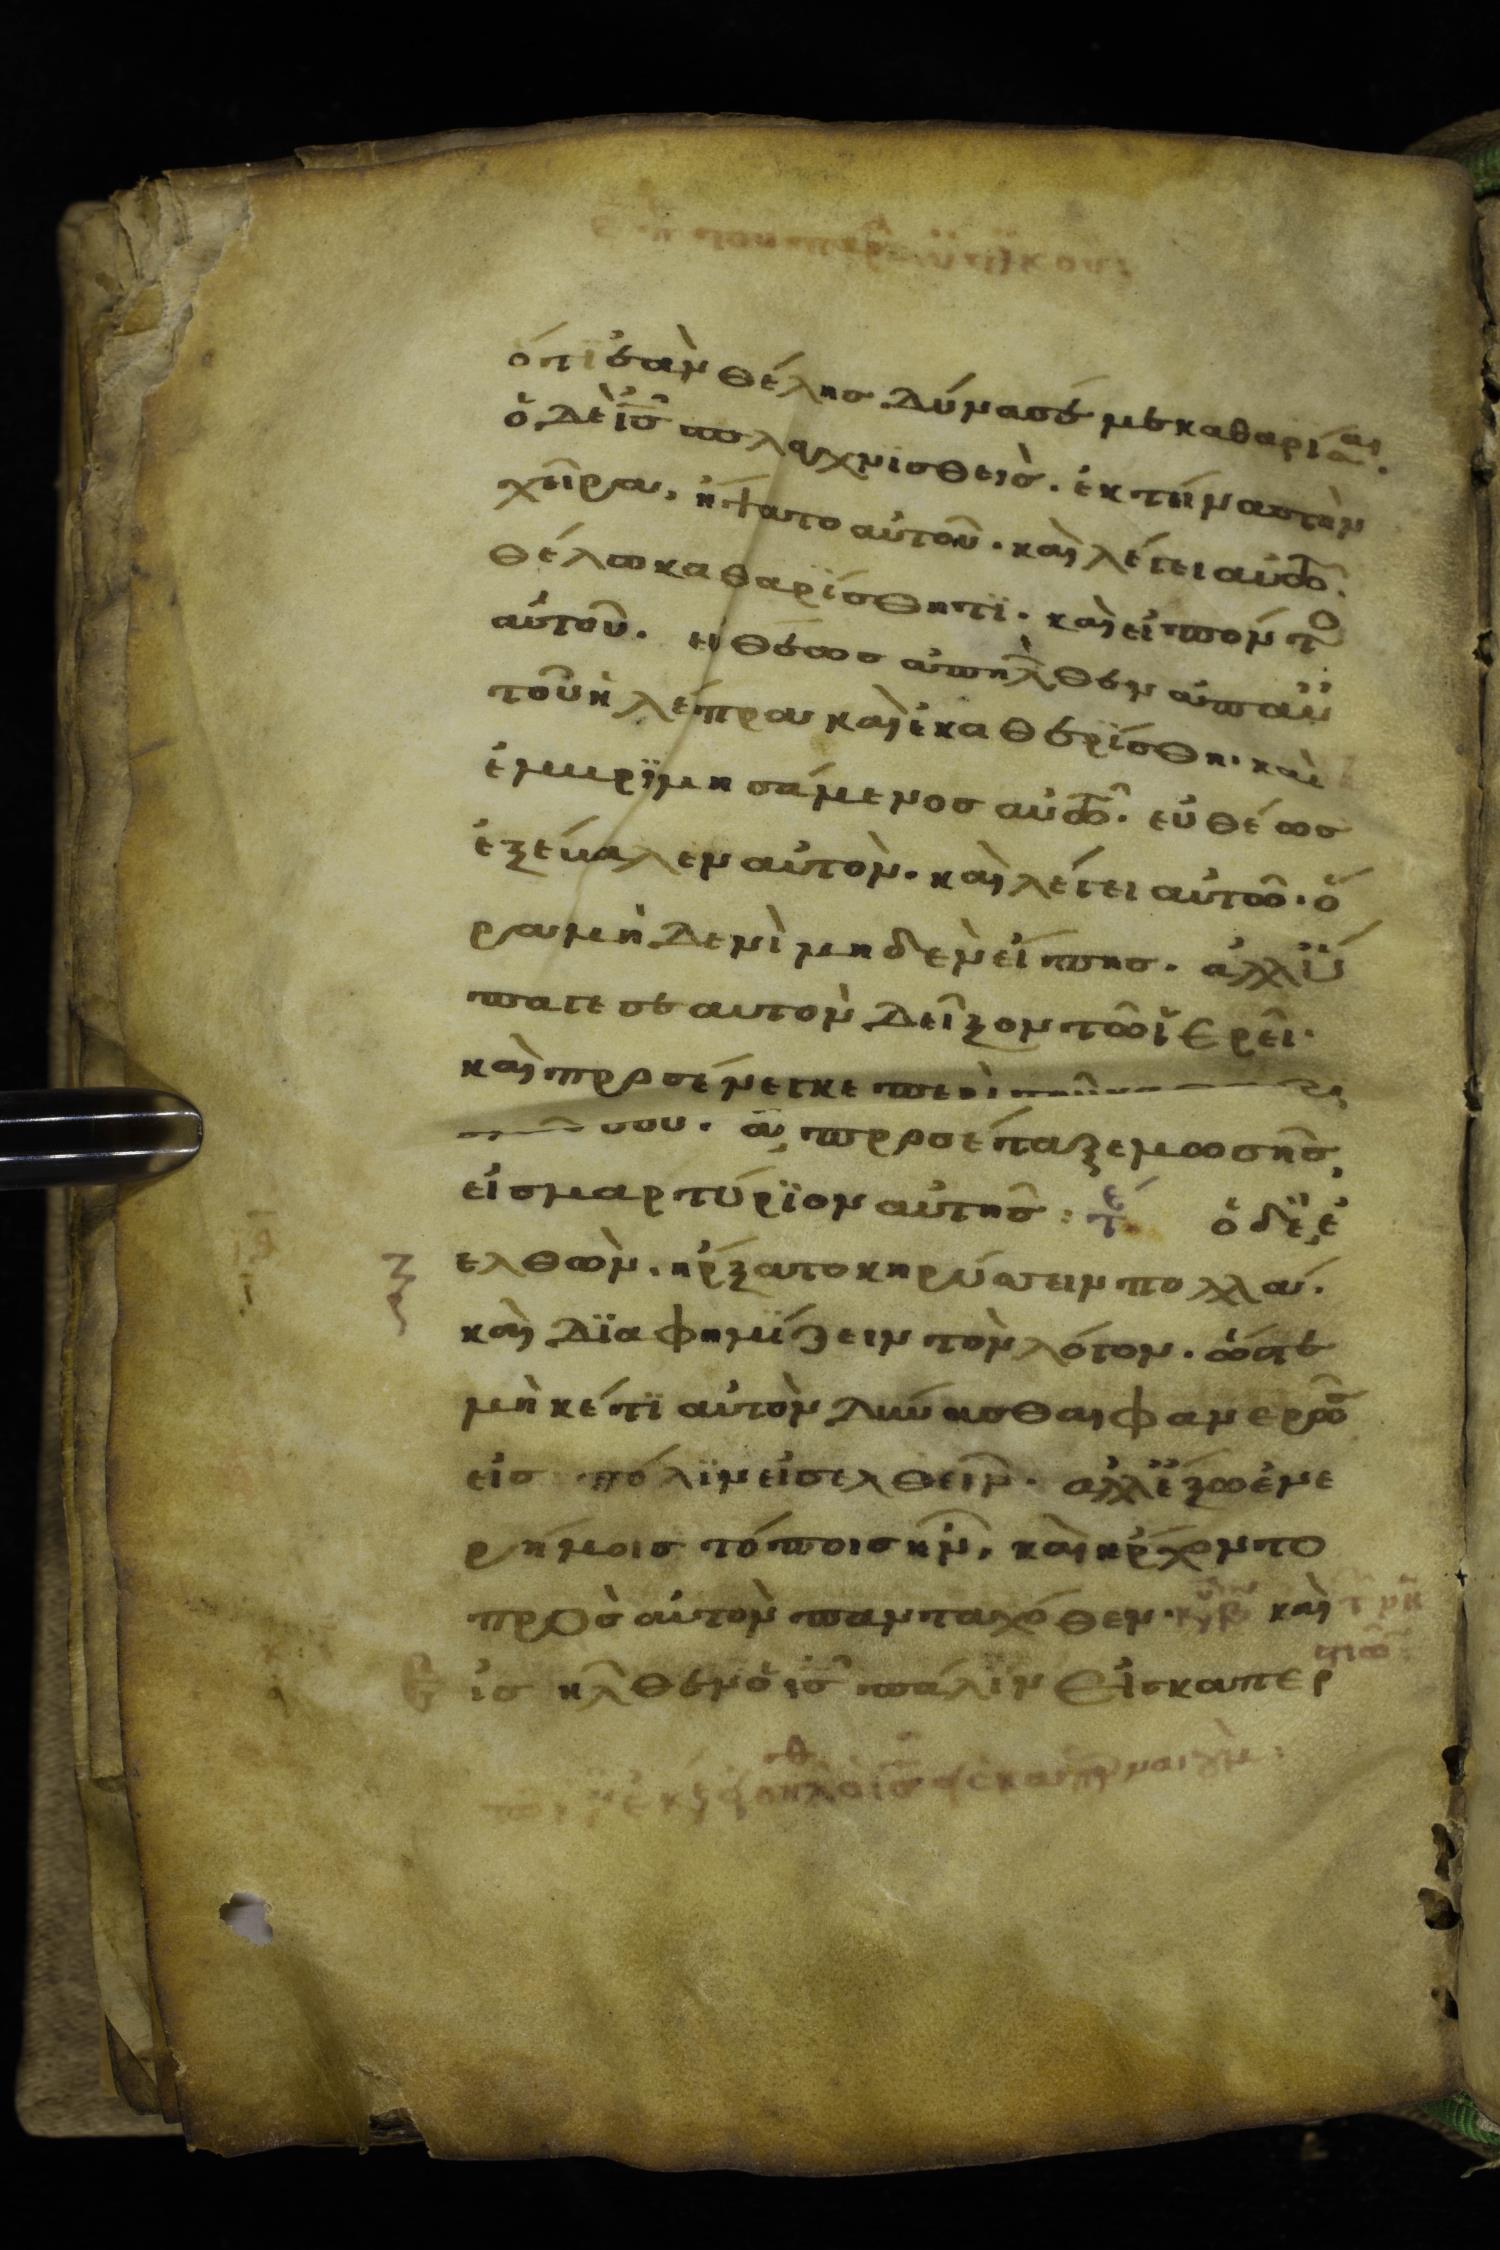 ὅτι ἐὰν θέλησ δύνασέ με καθαρίσαι.
ὁ δὲ ι̅σ̅ σπλαχνισθεὶσ. ἐκτήνασ τὴν
χεῖρα, ἥψατο αὐτοῦ. καὶ λέγει αὐτῶ.
θέλω καθαρίσθητϊ. καὶ εἰπόντο
αὐτοῦ. εὐθέωσ ἀπῆλθεν ἀπ αὐ
τοῦ ἡ λέπρα καὶ ἐκαθερίσθη. καὶ
ἐμβρϊμησάμενοσ αὐτῶ. εὐθέωσ
ἐξέβαλεν αὐτὸν. καὶ λέγει αὐτῶ. ὅ
ρα μὴδενὶ μηδὲν εἴπησ. ἀλλ ὕ
παγε σεαυτὸν δεῖξον τῶ ϊερεῖ.
καὶ προσένεγκε περὶ
σου. ἃ προσέταξε μωσῆσ,
εἰσ μαρτύρϊον αὐτῆσ : τε ὁ δὲ ἐ
ξελθὼν. ἤρξατο κηρύσσειν πολλά.
καὶ δϊαφημίζειν τὸν λόγον. ὥστε
μὴκέτϊ αὐτὸν δύνασθαι φανερῶσ
εἰσ πόλϊν εἰσελθεῖν. ἀλλ ἔξω ἐν ἐ
ρήμοισ τόποισ ἦν, καὶ ἤρχοντο
πρὸσ αὐτὸν πανταχόθεν. καὶ
ἰσῆλθεν ὁ ι̅σ̅ πάλιν εἰσ καπερ